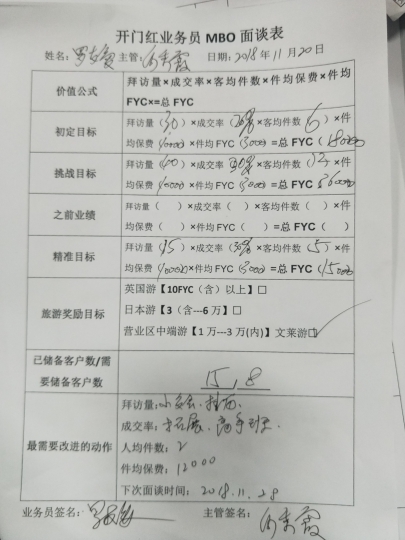 开门红业务员 MBO 面谈表
姓名: 主管: 日期: 2018年11月20日
价值公式 拜访量×成交率×客均件数×件均保费×件均
FYC×=总 FYC
初定目标 拜访量（30）×成交率（20%）×客均件数（6）×件
均保费（10000）×件均 FYC（3000）=总 FYC（18000）
挑战目标 拜访量（40）×成交率（30%）×客均件数（12）×件
均保费（10000）×件均 FYC（3000）=总 FYC（36000）
之前业绩 拜访量（ ）×成交率（ ）×客均件数（ ）×件
均保费（ ）×件均 FYC（ ）=总 FYC（ ）
精准目标 拜访量（15）×成交率（30%）×客均件数（5）×件
均保费（10000）×件均 FYC（3000）=总 FYC（15000）
旅游奖励目标 英国游【10FYC（含）以上】□
日本游【3（含---6 万】□
营业区中端游【1 万---3 万(内)】文莱游☑
已储备客户数/需
要储备客户数 15，8
最需要改进的动作 拜访量:
成交率:
人均件数: 2
件均保费: 12000
下次面谈时间: 2018.11.28
业务员签名: 主管签名: